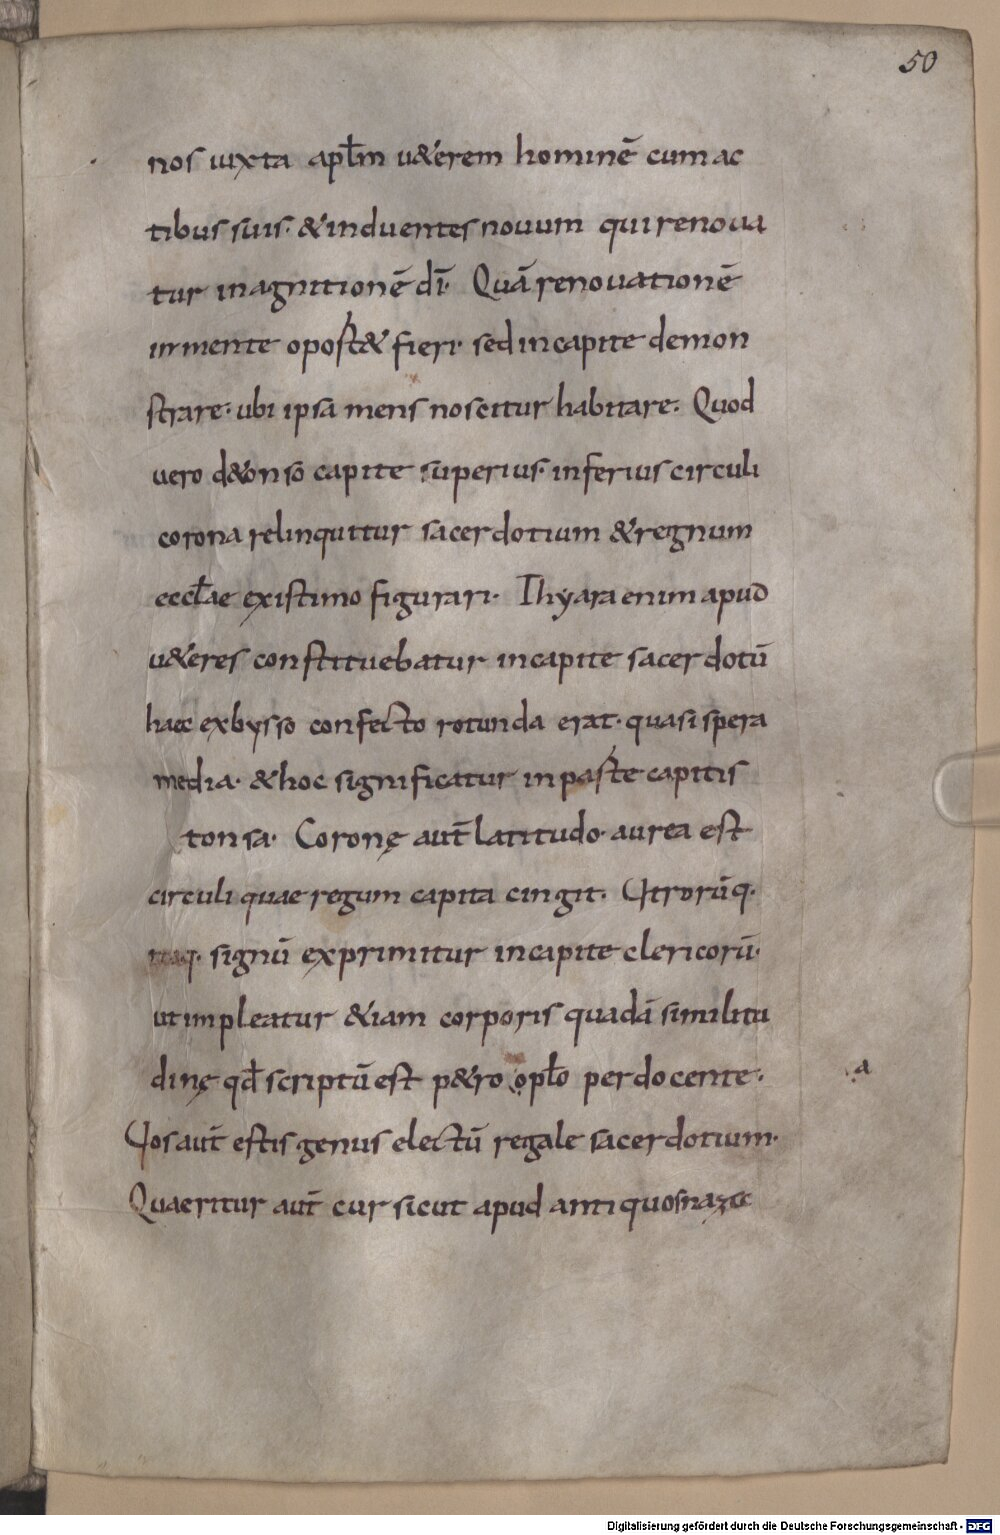 50
nos iuxta apł̄m u&erem hominē cum ac
tibus suis· & induentes nouum qui renoua
tur in agnitionē dī· Quā renouationē
in mente oport& fieri· sed in capite demon
strare· ubi ipsa mens noscitur habitare· Quod
uero d&onso capite superius· inferius circuli
corona relinquitur sacerdotium & regnum
eccłae existimo figurari· Thyara enim apud
u&eres constituebatur in capite sacerdotū
haec ex bysso confecto rotunda erat· quasi spera
media· & hoc significatur in parte capitis
tonsa· Coronę aut̄ latitudo· aurea est
circuli quae regum capita cingit· Utrorūq·
itaq· signū exprimitur in capite clericorū·
ut impleatur &iam corporis quadā similitu
dinę qđ scriptū est p&ro opło perdocente·
a
Uos aut̄ estis genus electū regale sacerdotium·
Quaeritur aut̄ cur sicut apud antiquos naze
Digitalisierung gefördert durch die Deutsche Forschungsgemeinschaft - DFG